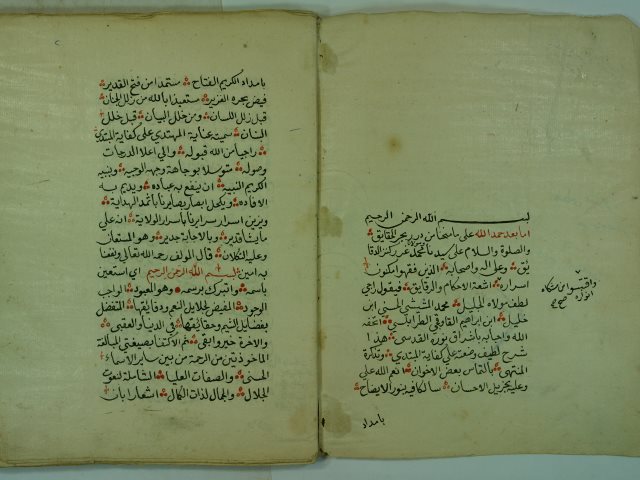 بسم الله الرحمن الرحيم
اما بعد حمد الله على ما منحنا من درر بحر الحقايق
والصلوة والسلام على سيدنا محمد كنز الدقا
يق وعلى اله واصحابه الذين فقهوا مكنون
اسرار اشعة الاحكام والرقايق فيقول راجي
لطف مولاه الجليل محمد الششتي الحسني ابن
خليل ابن ابراهيم القاوقجي الطرابلسي اتحفه
الله واحبابه باشراق نوره القدسي هذا
شرح لطيف وضعته على كفاية المبتدي وتذكرة
المنتهي بالتماس بعض الاخوان انعم الله علي
وعليه بجزيل الاحسان سالكا فيه نور الايضاح
بامداد
واقتبسوا من مشكاة
انواره صح
بامداد الكريم الفتاح مستمدا من فتح القدير
فيض بحره الغزير مستعيذا بالله من زلل الجنان
قبل زلل اللسان ومن خلل البيان قبل خلل
البنان سميته عناية المهتدي على كفاية المبتدي
راجيا من الله قبوله والى اعلا الدرجات
وصوله متوسلا بوجاهة وجهه الوجيه ونبيه
الكريم النبيه ان ينفع به عباده ويديم به
الافاده ويكحل ابصار بصايرنا باثمد الهداية
ويزين اسرار سرايرنا باسرار الولاية انه على
ما يشا قدير وبالاجابة جدير وهو المستعان
وعليه التكلان قال المولف رحمه الله تعالى ونفعنا
به امين بسم الله الرحمن الرحيم اي استعين
باسمه واتبرك برسمه وهو المعبود الواجب
الوجود المفيض لجلايل النعم ودقايقها المتفضل
بفضايل النسم وحقايقها في الدنيا والعقبى
والاخرة خير وابقى ثم الاكتفا بصيغتي المبالغة
الماخوذتين من الرحمة من بين ساير الاسماء
الحسنى والصفات العليا الشاملة لنعوت
الجلال والجمال لذات الكمال اشعارا بان